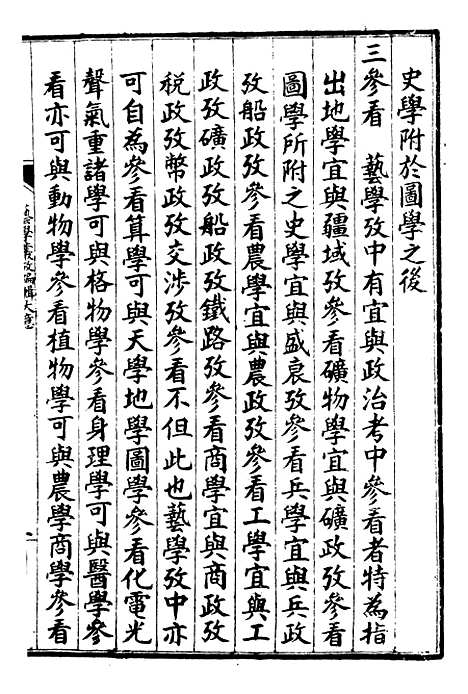 史學附於圖學之後
三參看　藝學攷中有宜與政治考中參看者特為指
出地學宜與疆域攷參看礦物學宜與礦政攷參看
圖學所附之史學宜與盛衰攷參看兵學宜與兵政
攷船政攷參看農學宜與農政攷參看工學宜與工
政攷礦政攷船政攷鐵路攷參看商學宜與商政攷
稅政攷幣政攷交涉攷參看不但此也藝學攷中亦
可自為參看算學可與天學地學圖學參看化電光
聲氣重諸學可與格物學參看身理學可與醫學參
看亦可與動物學參看植物學可與農學商學參看